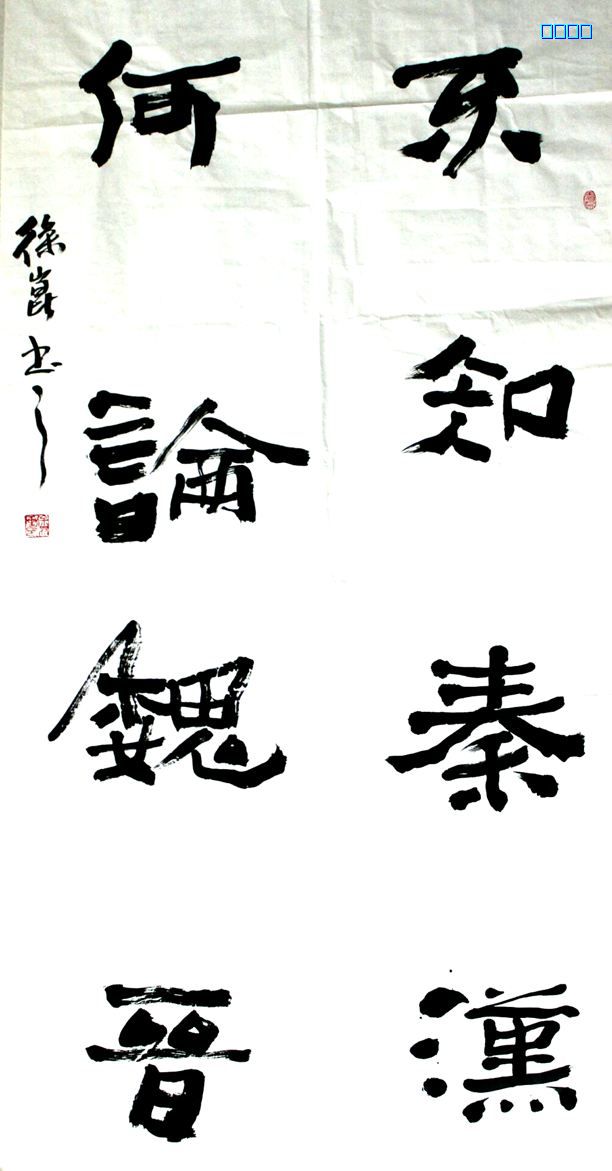 不知秦漢
何論魏晉
徐崑书